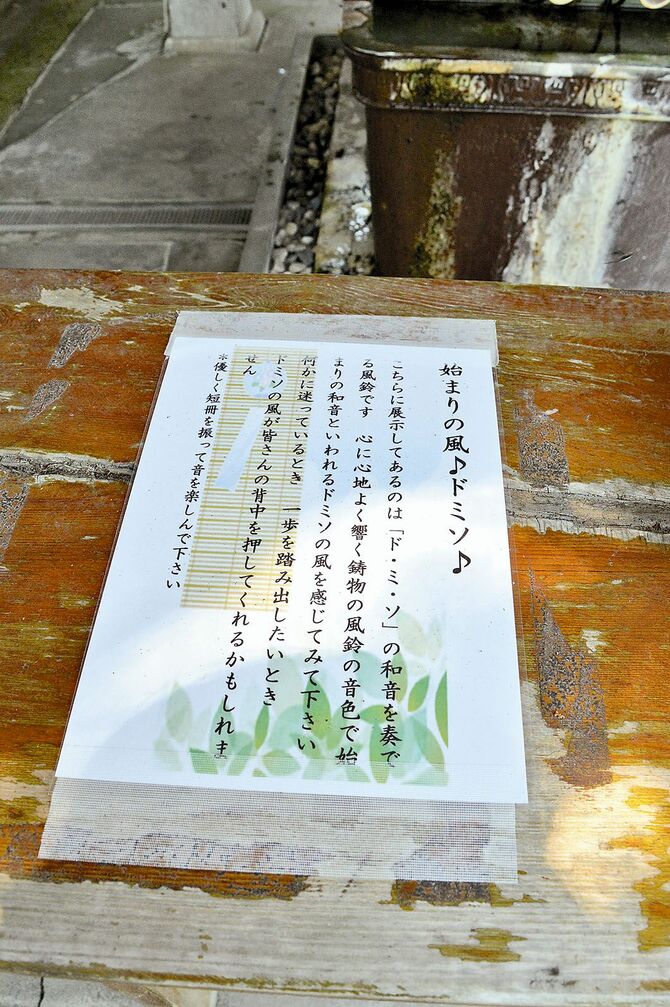 始まりの風♪ドミソ♪
こちらに展示してあるのは「ド・ミ・ソ」の和音を奏で
る風鈴です　心に心地よく響く鋳物の風鈴の音色で始
まりの和音といわれるドミソの風を感じてみて下さい
何かに迷っているとき　一歩を踏み出したいとき
ドミソの風が皆さんの背中を押してくれるかもしれま
せん
＊優しく短冊を振って音を楽しんで下さい